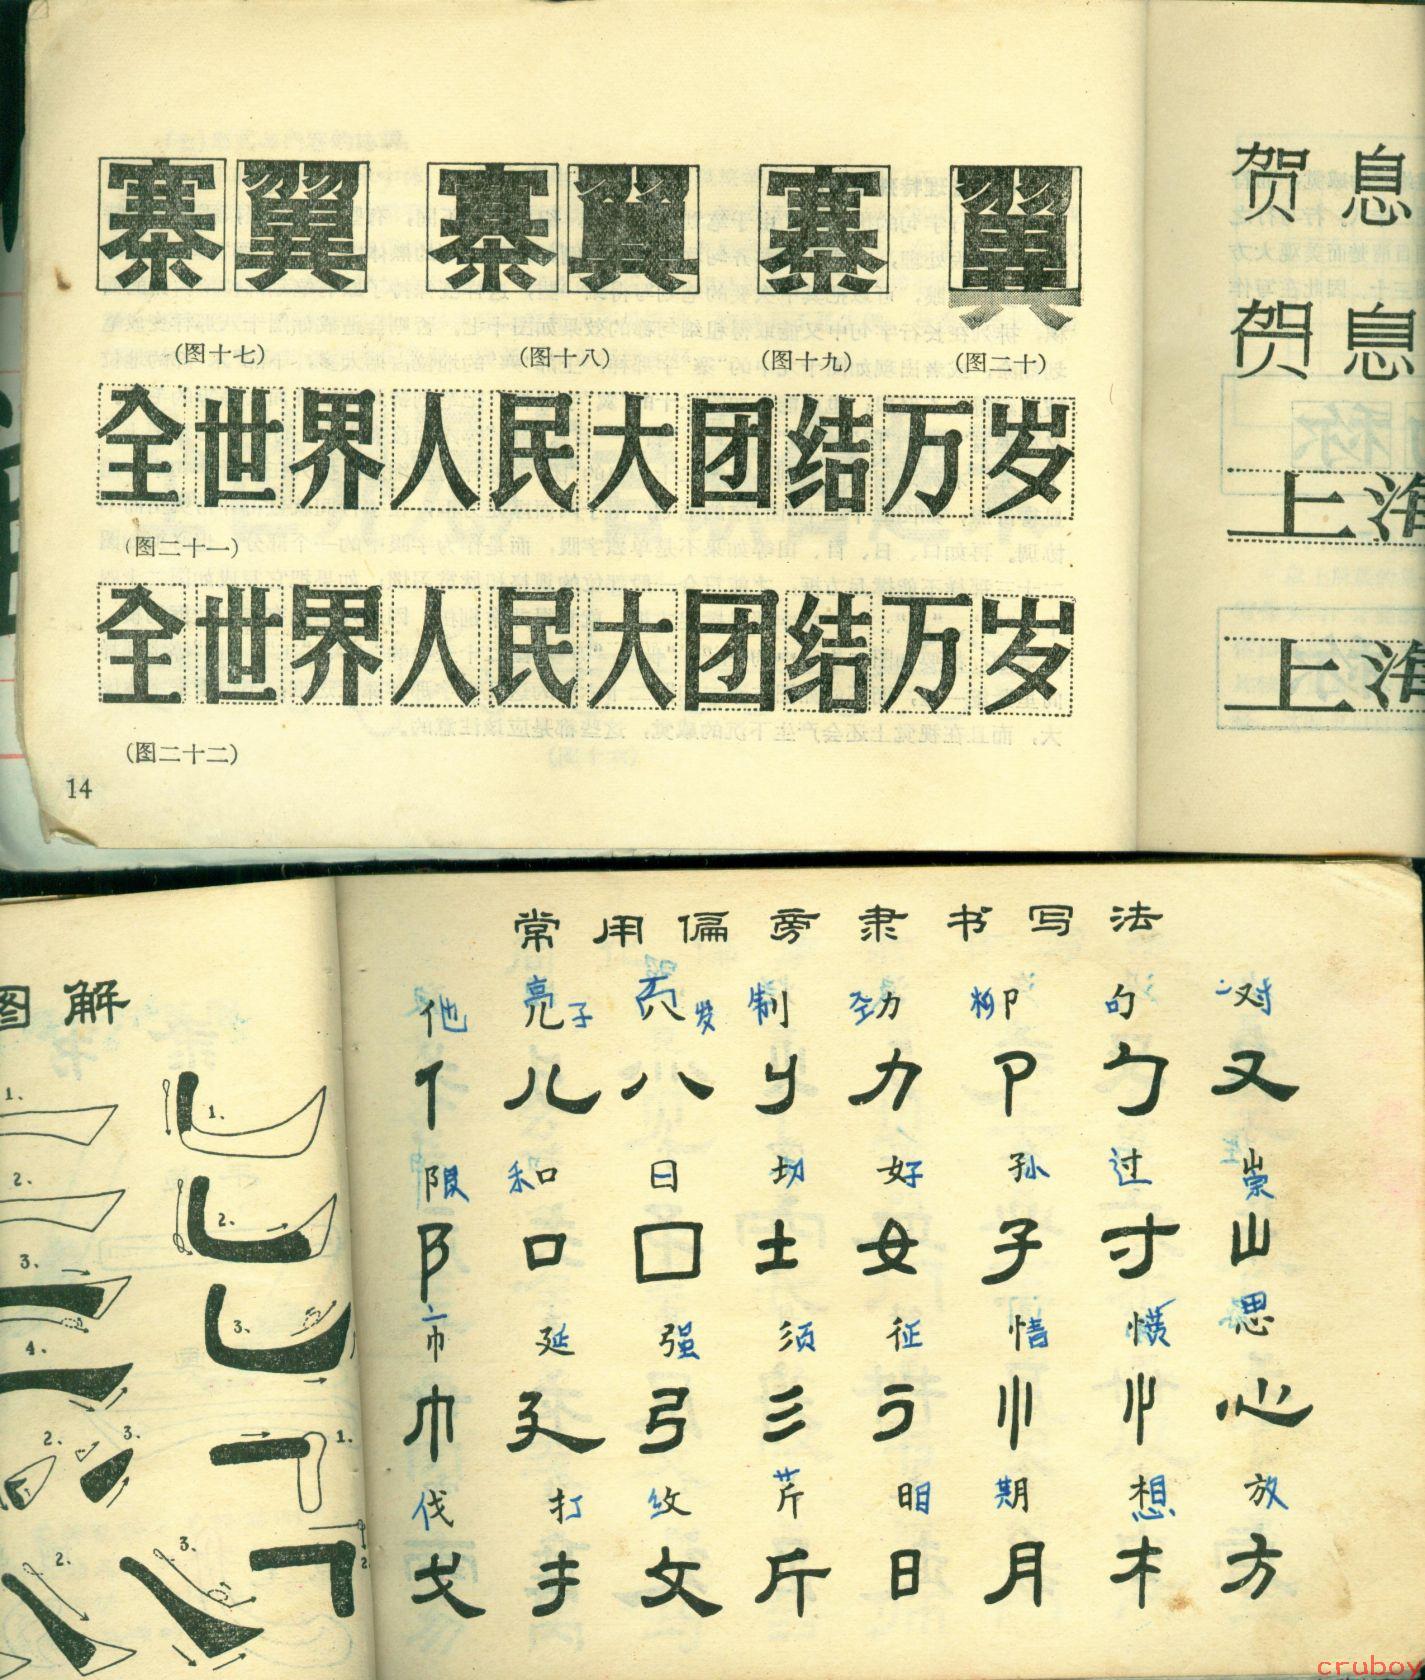 寨翼 寨翼 寨 翼
(图十七) (图十八) (图十九) (图二十)
全世界人民大团结万岁
(图二十一)
全世界人民大团结万岁
(图二十二)
14
贺息
贺息
上海
上海
图解
1.
2.
3.
4.
2. 3.
2. 3.
1.
2.
3.
1.
2.
常用偏旁隶书写法
他 亮 子 贡 发 制 劲 柳 句 对
亻 儿 八 刂 力 卩 勹 又
限 和 日 切 好 孙 过 崇
阝 口 囗 土 女 子 寸 山
市 延 强 须 征 惜 横 思
巾 廴 弓 彡 彳 忄 忄 心
伐 打 纹 芹 明 期 想 放
戈 扌 文 斤 日 月 木 方
cruboy